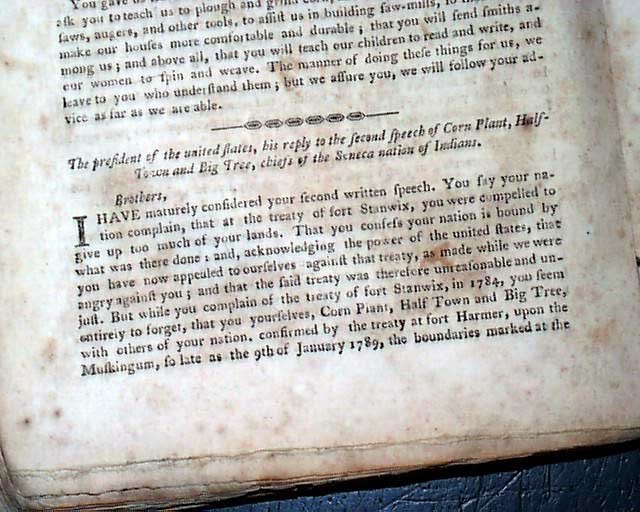 You gave us
ask you to teach us to plough and grind corn,
saws, augers, and other tools, to assist us in building saw-mills,
make our houses more comfortable and durable; that you will send smiths a-
mong us; and above all, that you will teach our children to read and write, and
our women to spin and weave. The manner of doing these things for us, we
leave to you who understand them; but we assure you, we will follow your ad-
vice as far as we are able.
The president of the united states, his reply to the second speech of Corn Plant, Half-
Town and Big Tree, chiefs of the Seneca nation of Indians.
Brothers,
I HAVE maturely considered your second written speech. You say your na-
tion complain, that at the treaty of fort Stanwix, you were compelled to
give up too much of your lands. That you confess your nation is bound by
what was there done: and, acknowledging the power of the united states, that
you have now appealed to ourselves against that treaty, as made while we were
angry against you; and that the said treaty was therefore unreasonable and un-
just. But while you complain of the treaty of fort Stanwix, in 1784, you seem
entirely to forget, that you yourselves, Corn Plant, Half Town and Big Tree,
with others of your nation, confirmed by the treaty at fort Harmer, upon the
Muskingum, so late as the 9th of January 1789, the boundaries marked at the